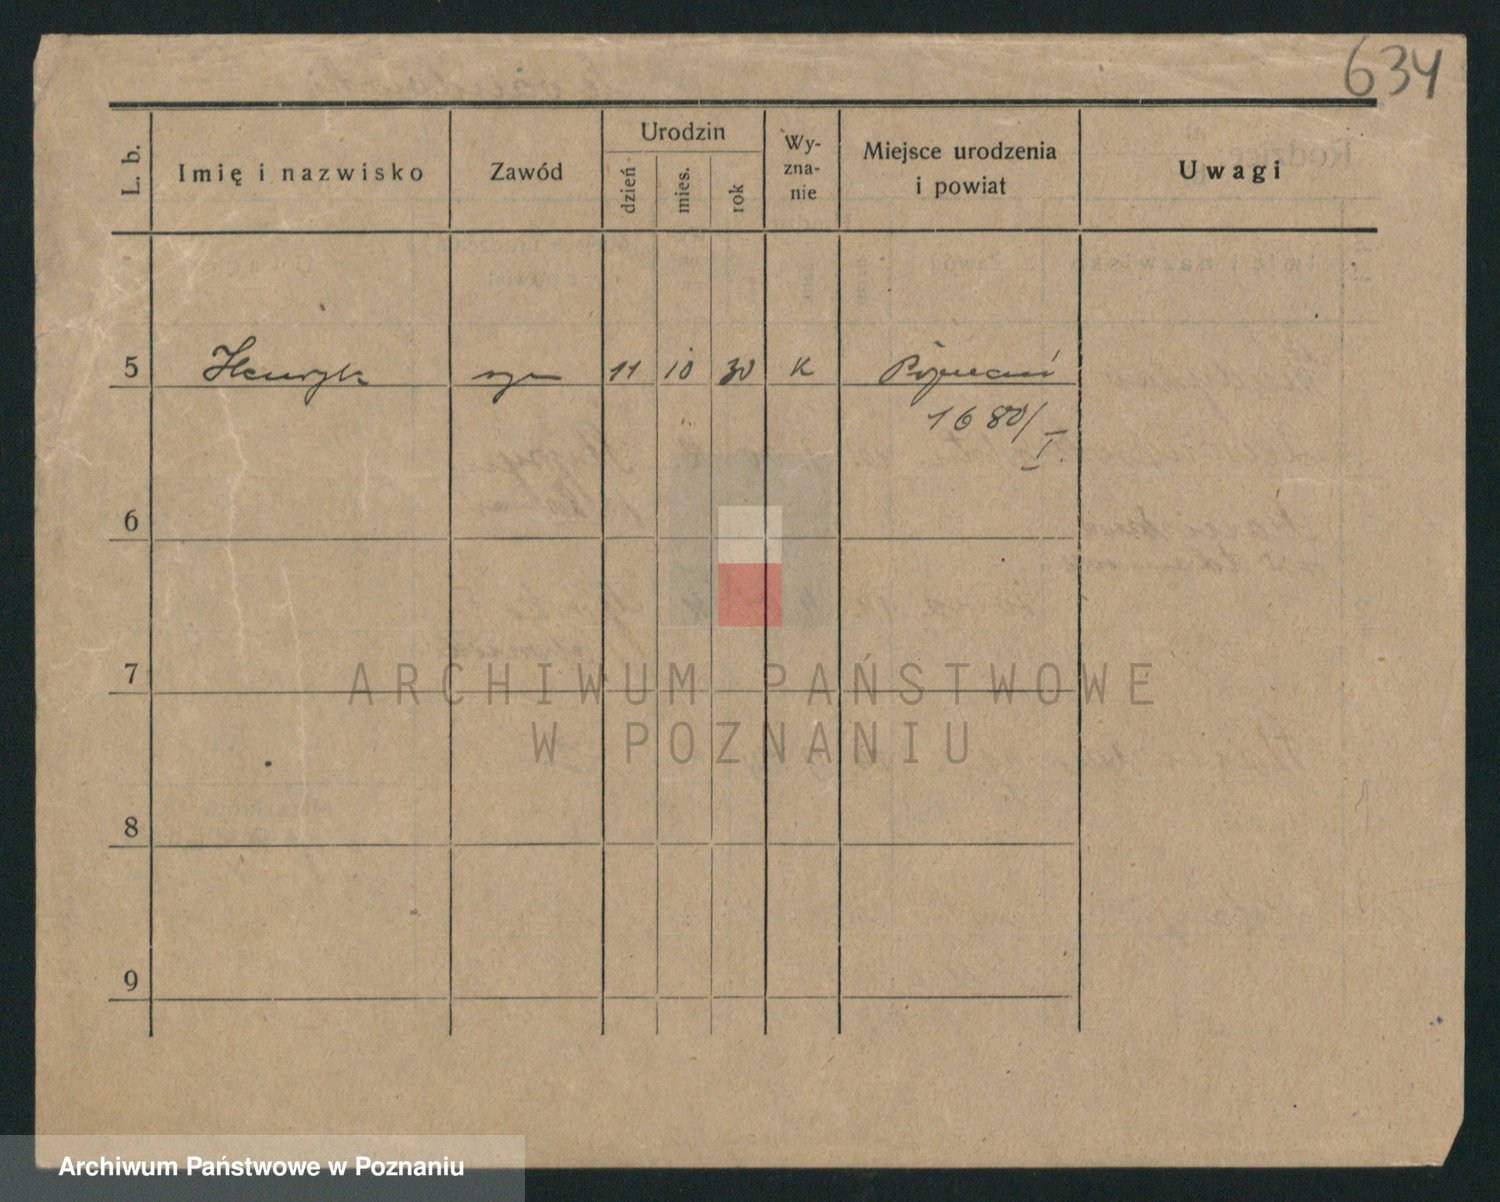 634
L. b.
Imię i nazwisko
Zawód
Urodzin
dzień
mies.
rok
Wy-
zna-
nie
Miejsce urodzenia
i powiat
Uwagi
5 Henryk syn 11 10 30 K Poznań
1680/I.
6
7
8
9
ARCHIWUM PAŃSTWOWE
W POZNANIU
Archiwum Państwowe w Poznaniu